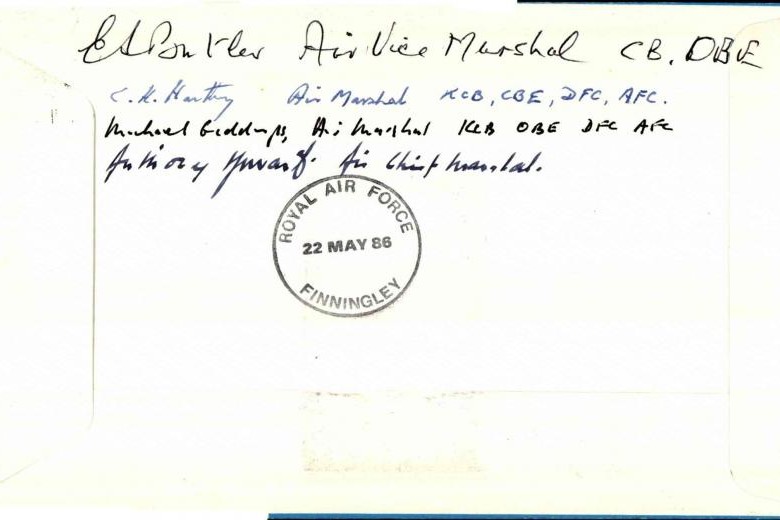 Air Vice Marshal CB, OBE
Air Marshal KCB, CBE, DFC, AFC.
Michael Giddings, Air Marshal KCB OBE DFC AFC
Anthony Air Chief Marshal.
ROYAL AIR FORCE
22 MAY 86
FINNINGLEY